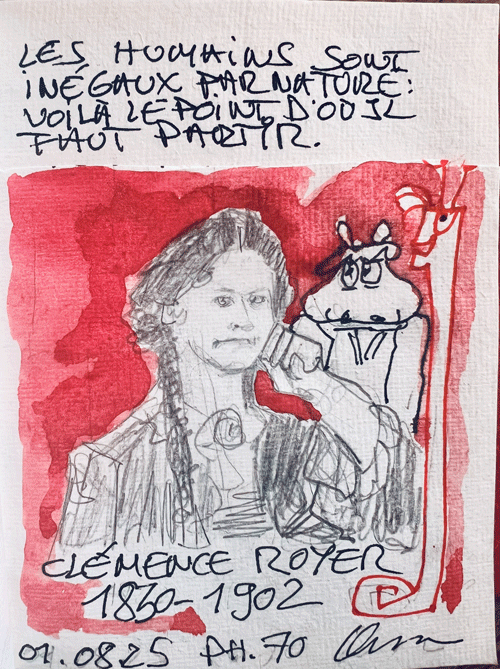 LES HUMAINS SONT
INÉGAUX PAR NATURE:
VOILÀ LE POINT D'OÙ IL
FAUT PARTIR.
CLÉMENCE ROYER
1830-1902
01.0825 PH.70